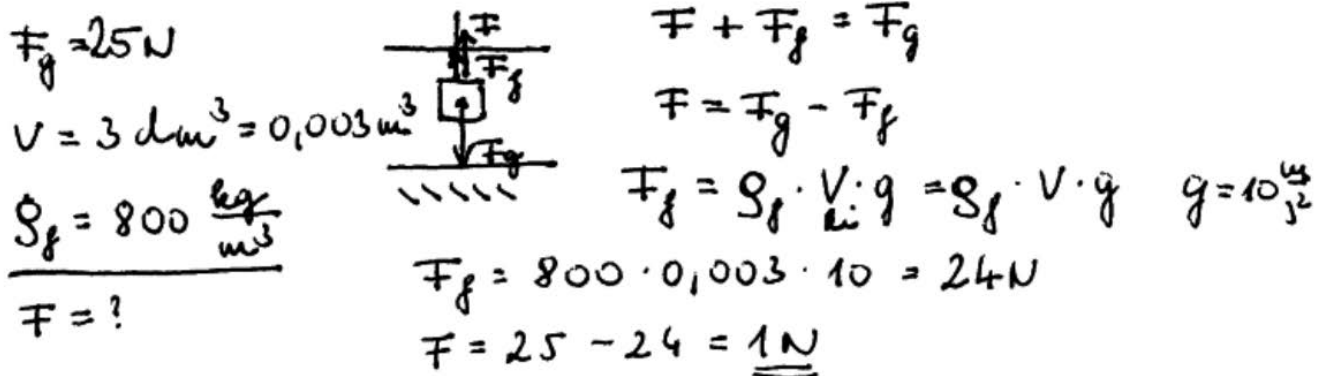 F_g = 25 N
V = 3 dm³ = 0,003 m³
ρ_f = 800 kg/m³
F = ?
F
F_f
F_g
F + F_f = F_g
F = F_g - F_f
F_f = ρ_f · V_ki · g = ρ_f · V · g g = 10 m/s²
F_f = 800 · 0,003 · 10 = 24 N
F = 25 - 24 = 1 N